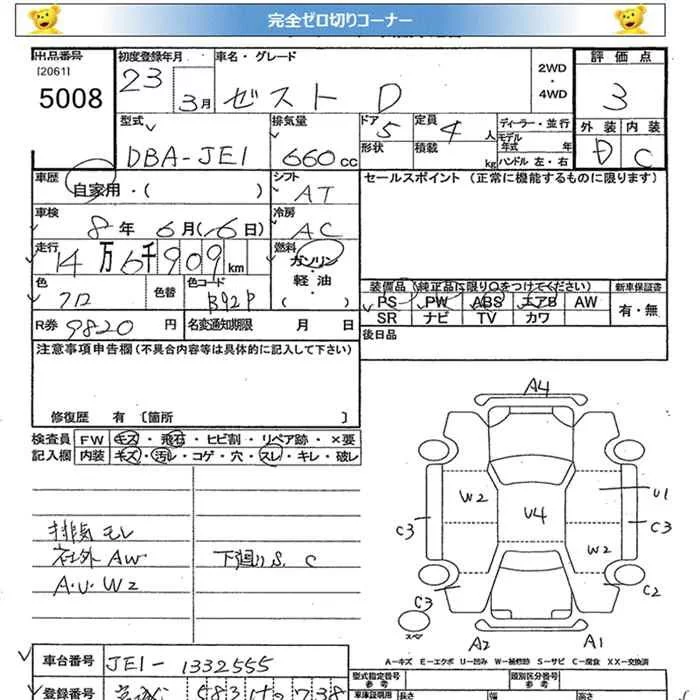 完全ゼロ切りコーナー
出品番号
[2061]
5008
初度登録年月
23 3月
車名・グレード
ゼスト D
2WD
・
4WD
評価点
3
外装 内装
D C
型式
DBA-JE1
排気量
660cc
ドア
5
形状
定員
4人
積載
kg
ディーラー・並行
モデル年式 年
ハンドル 左・右
車歴
自家用・( )
シフト
AT
セールスポイント (正常に機能するものに限ります)
車検
8年 6月( 6日)
冷房
AC
走行
14万6千909km
燃料
ガソリン
・
軽油
・
( )
色
クロ
色替
色コード
B92P
装備品(純正品に限り○をつけてください)
新車保証書
PS PW ABS エアB AW
有・無
SR ナビ TV カワ
R券 9820円
名変通知期限 月 日
後日品
注意事項申告欄(不具合内容等は具体的に記入して下さい)
修復歴 有 [箇所 ]
検査員
記入欄
FW キズ・飛石・ヒビ割・リペア跡・×要
内装 キズ・汚レ・コゲ・穴・スレ・キレ・破レ
排気モレ
社外AW
A・U・W2
下廻りS、C
A4
W2
U4
U1
C3
C3
W2
C3
C2
スペア
A2
A1
A-キズ E-エクボ U-凹み W-補修跡 S-サビ C-腐食 XX-交換済
車台番号 JE1-1332555
登録番号
型式指定番号
参考
類別区分番号
参考
車庫証明用
長さ
幅
高さ